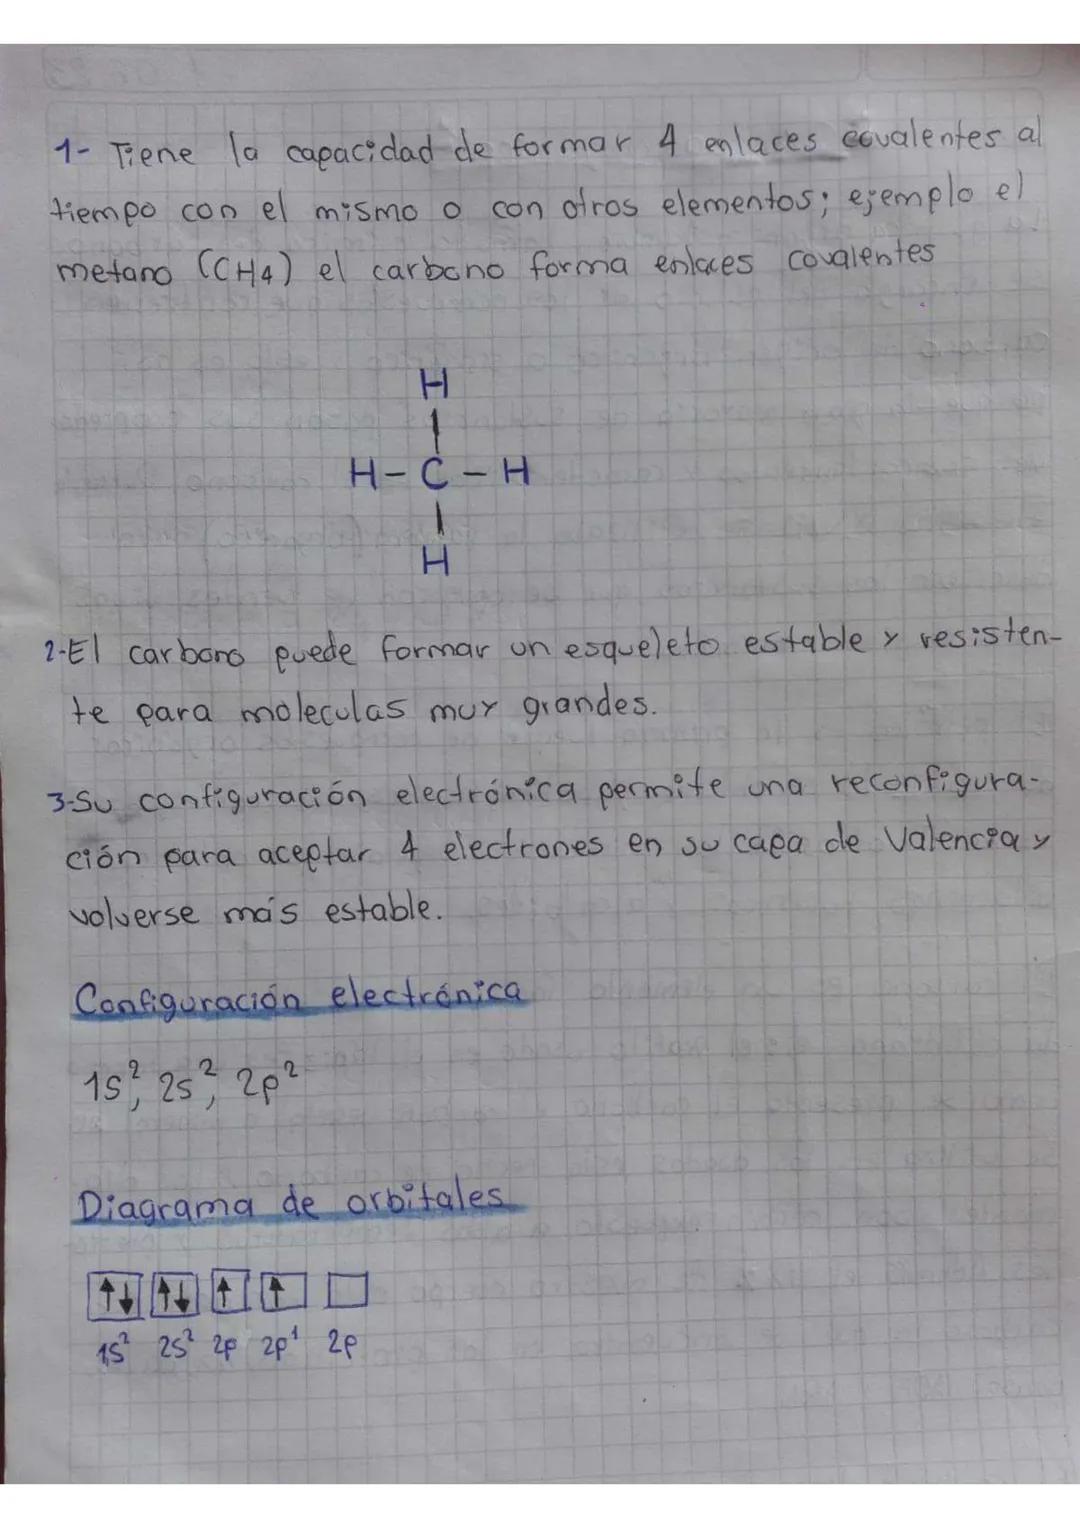 1- Tiene la capacidad de formar 4 enlaces covalentes al
tiempo con el mismo o con otros elementos; ejemplo el
metano (CH4) el carbono forma enlaces covalentes
H
H-C-H
H
2-El carbono puede formar un esqueleto estable y resisten-
te para moleculas muy grandes.
3-Su configuración electrónica permite una reconfigura-
ción para aceptar 4 electrones en su capa de Valencia y
volverse más estable.
Configuración electrónica
1s², 2s², 2p²
Diagrama de orbitales
↑↓ ↑↓ ↑ ↑
1s² 2s² 2p 2p¹ 2p